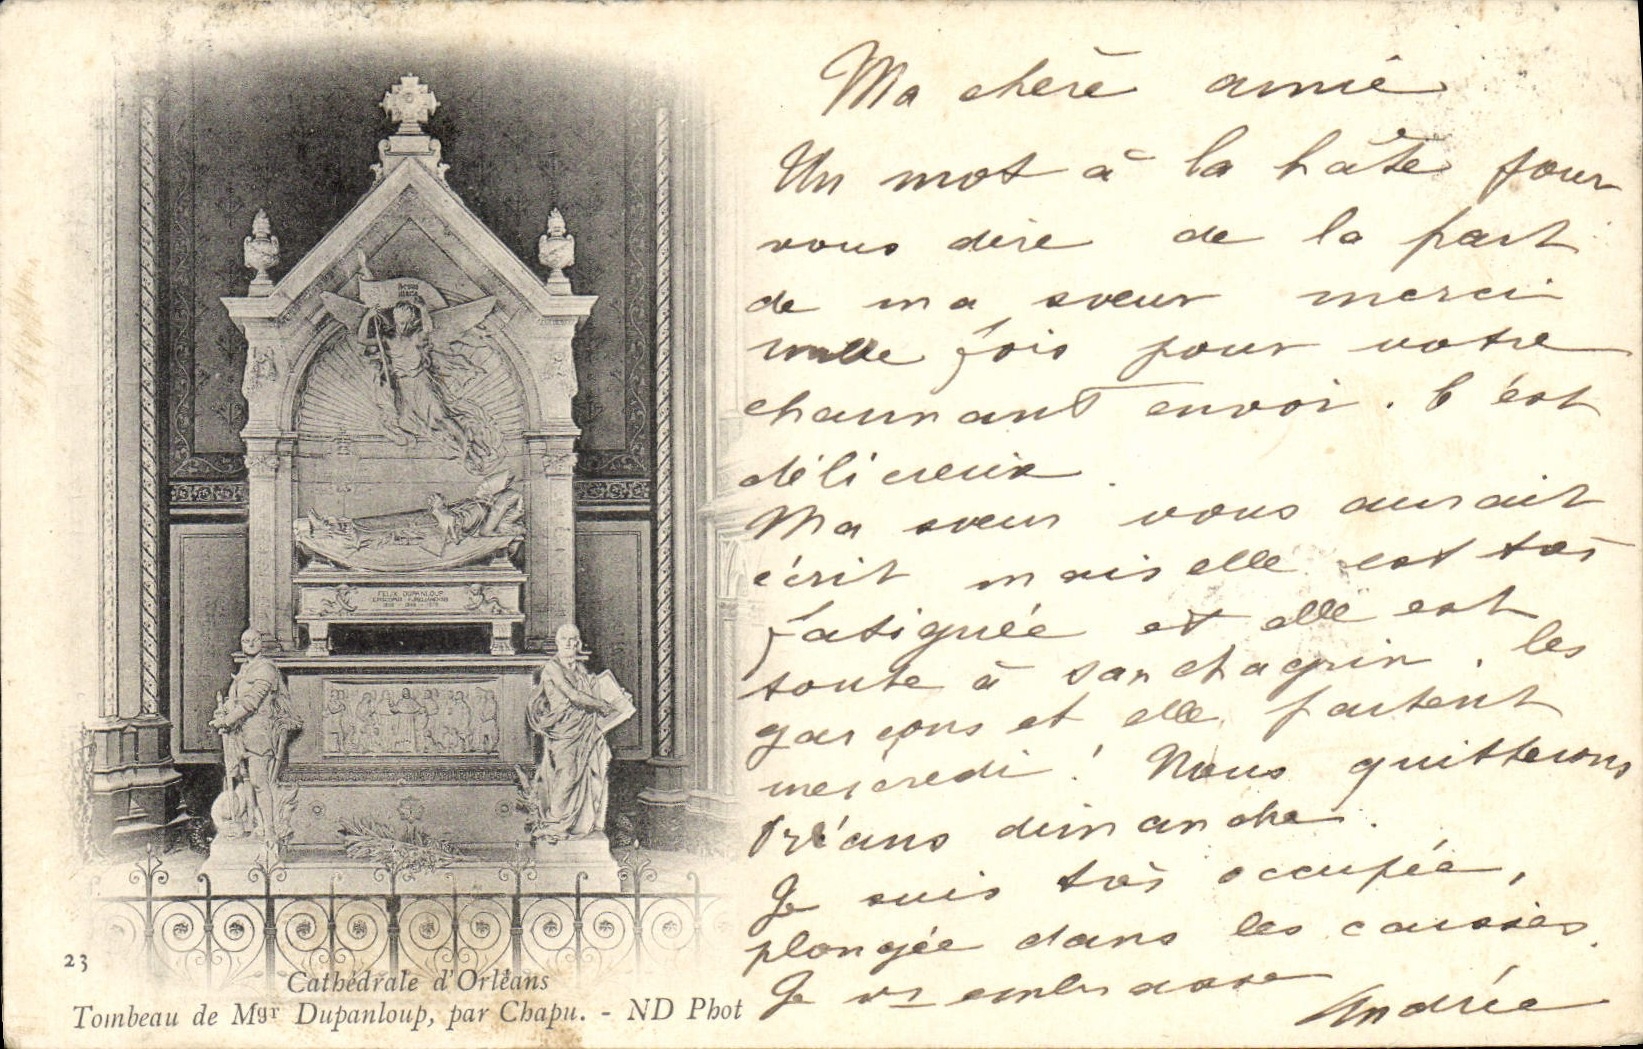 Ma chère amie
Un mot à la hâte pour
vous dire de la part
de ma sœur merci
mille fois pour votre
charmant envoi. C'est
délicieux.
Ma sœur vous aurait
écrit mais elle est très
fatiguée et elle est
toute à son chagrin. les
garçons et elle partent
mercredi ! Nous quitterons
Orléans dimanche.
Je suis très occupée,
plongée dans les caisses.
Je vs embrasse
Andrée
FELIX DUPANLOUP
23
Cathédrale d'Orléans
Tombeau de Mgr Dupanloup, par Chapu. - ND Phot